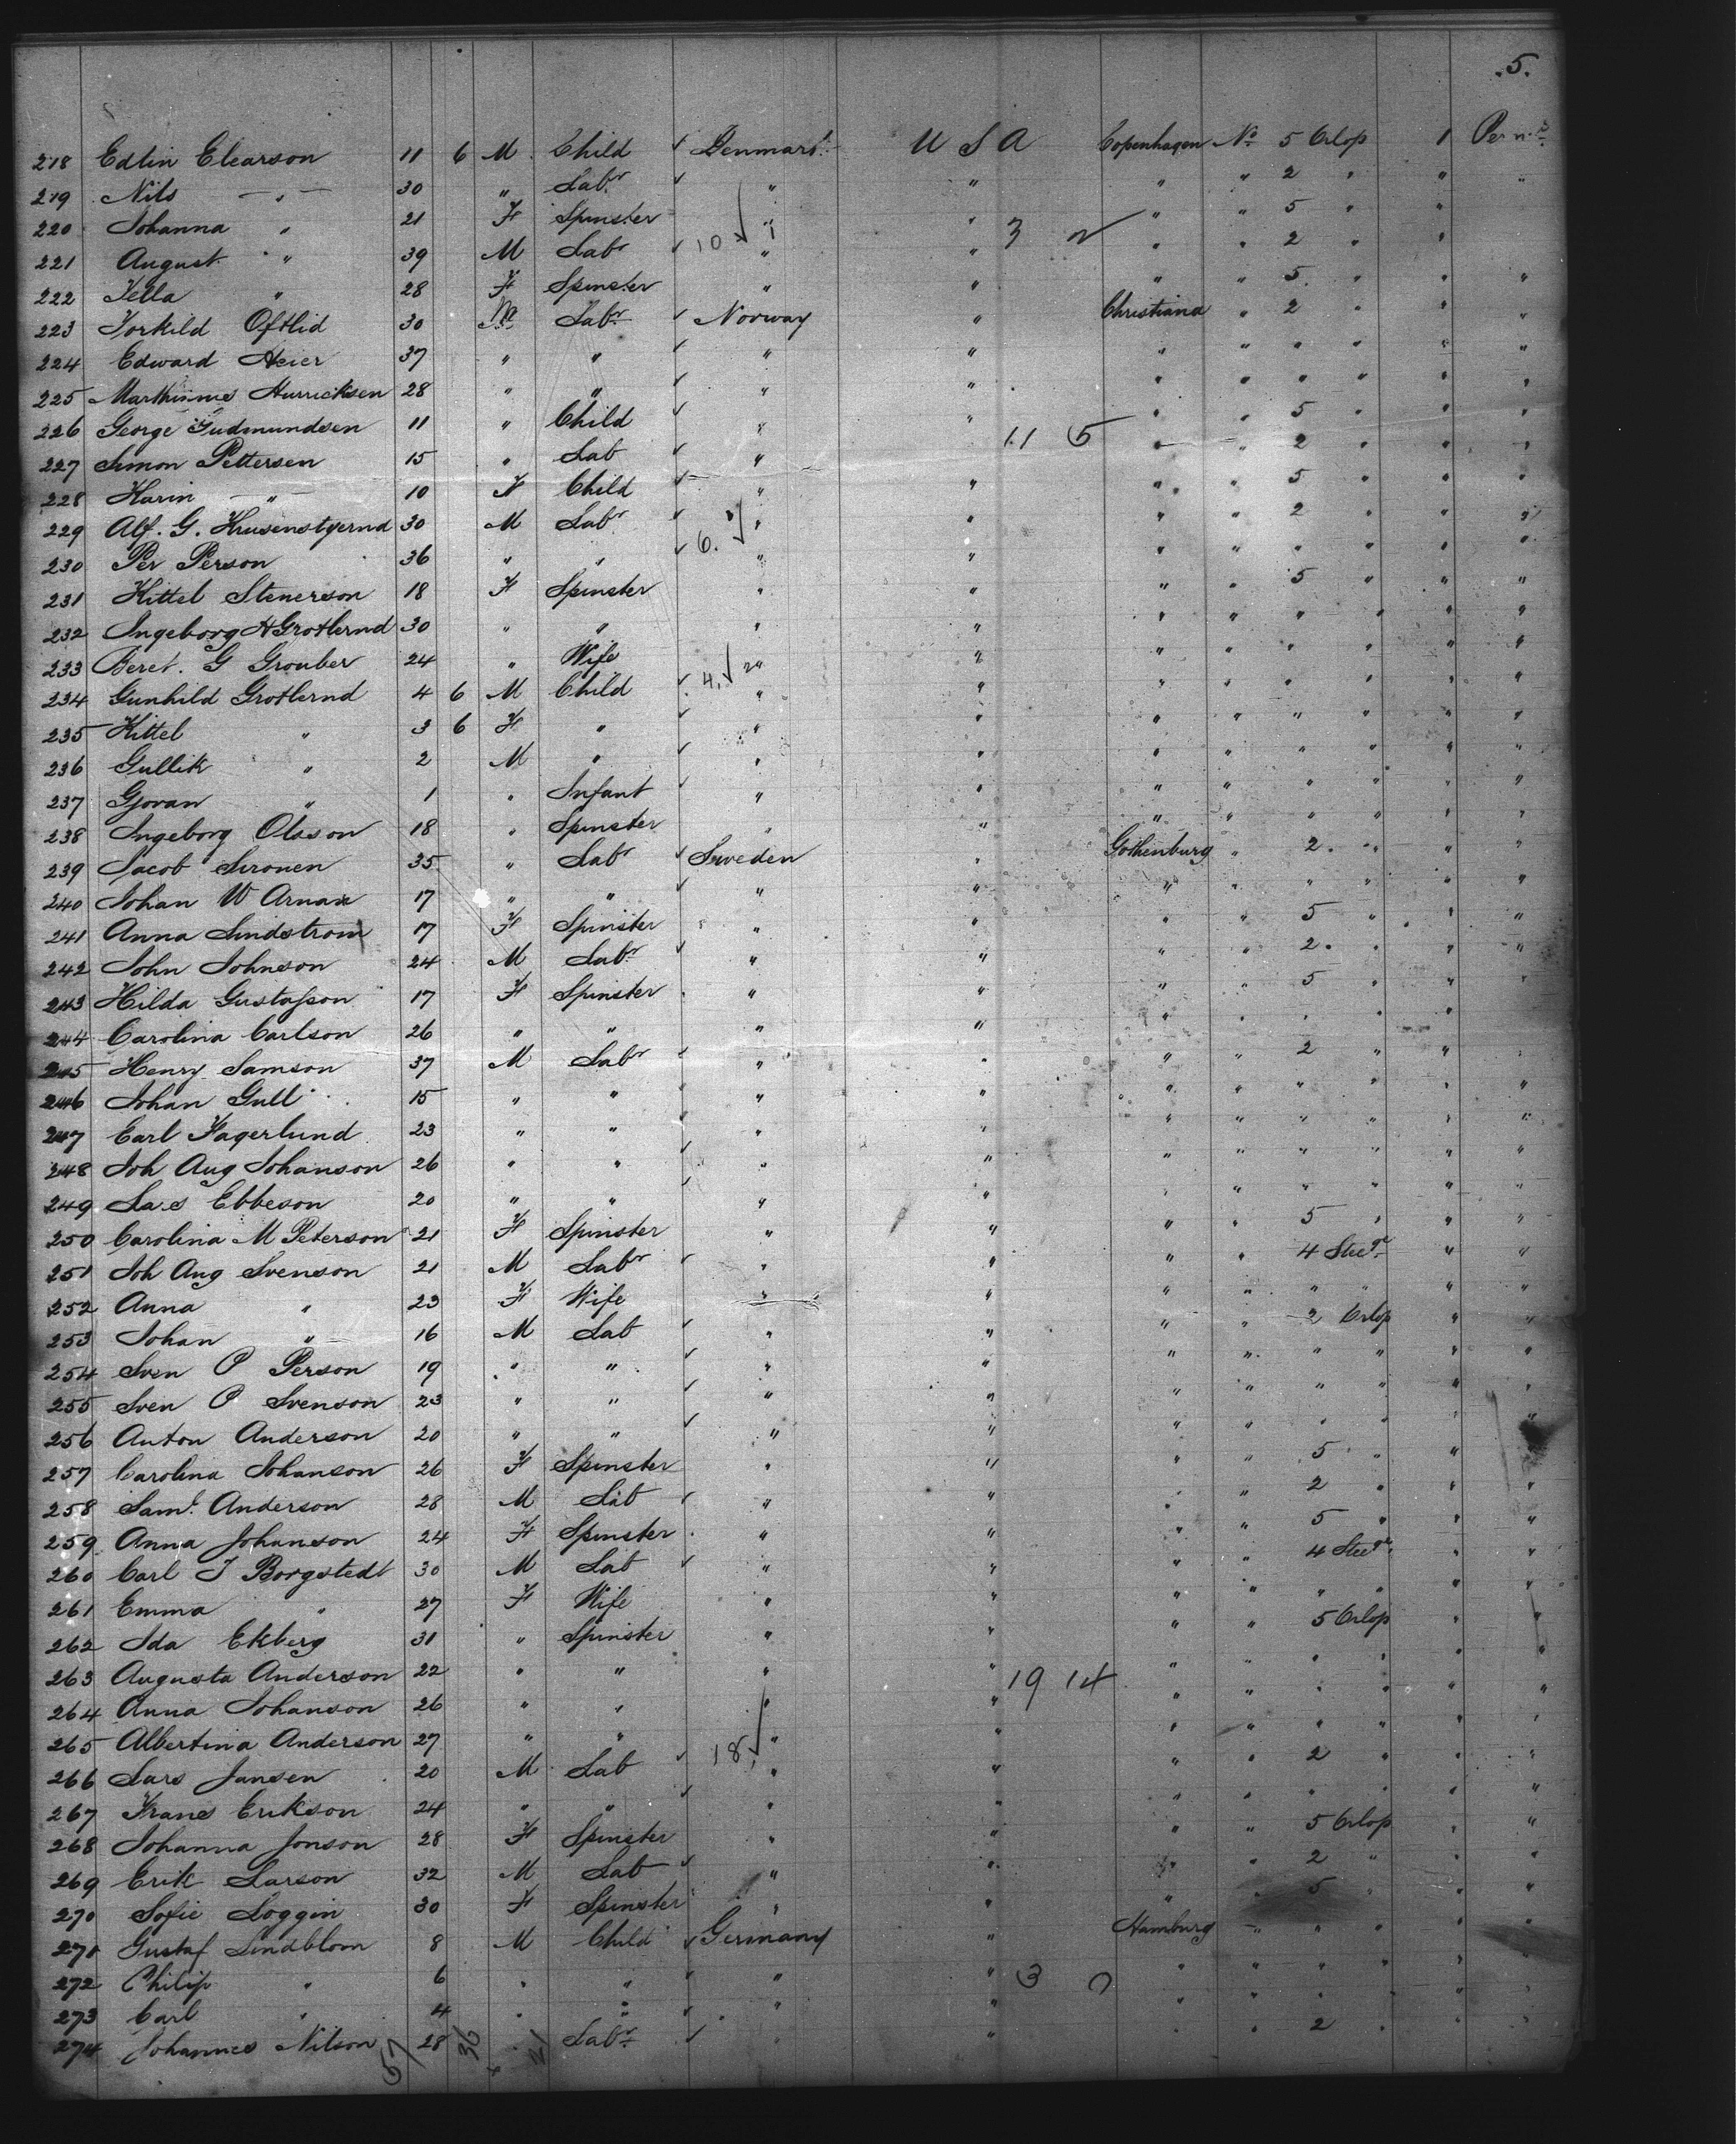 .5.
218 Edlin Elearson 11 6 M Child ✓ Denmark U S A Copenhagen No 5 Orlop 1 Per ms
219 Nils — " — 30 " Labr ✓ " " " " 2 " "
220 Johanna " 21 F Spinster " " 3 2 " " 5 " "
221 August " 39 M Labr ✓ 10 ✓ " " " " 2 " "
222 Jella " 28 F Spinster " " " " 5 " " "
223 Torkild Oftlid 30 M Labr ✓ Norway " Christiana " 2 " " "
224 Edward Heier 37 " " ✓ " " " " " " " "
225 Marthinus Hurricksen 28 " " ✓ " " " " " " " "
226 George Gudmundsen 11 " Child ✓ " " 11 5 " " 5 " " "
227 Simon Pettersen 15 " Lab ✓ " " " 2 " " "
228 Karin — " — 10 F Child ✓ " " " " 5 " " "
229 Alf. G. Krusenstyernd 30 M Labr ✓ " " " " 2 " " "
230 Per Person 36 " " ✓ 6. ✓ " " " " " " " "
231 Kittel Stenerson 18 F Spinster " " " " 5 " " "
232 Ingeborg H Grotlernd 30 " " " " " " " " " "
233 Beret. G Grouber 24 " Wife " " " " " " " "
234 Gunhild Grotlernd 4 6 M Child ✓ 4. ✓ " " " " " " " "
235 Kittel " 3 6 F " ✓ " " " " " " " "
236 Gullik " 2 M " ✓ " " " " " " " "
237 Gjoran " 1 " Infant ✓ " " " " " " " "
238 Ingeborg Olsson 18 " Spinster " " " " " " " "
239 Jacob Sironen 35 " Labr ✓ Sweden " Gothenburg " 2. " " "
240 Johan W Arnan 17 " " ✓ " " " " " " " "
241 Anna Lindstrom 17 F Spinster " " " " 5 " " "
242 John Johnson 24 M Labr ✓ " " " " 2. " " "
243 Hilda Gustafson 17 F Spinster " " " " 5 " " "
244 Carolina Carlson 26 " " " " " " " " "
245 Henry Samson 37 M Labr ✓ " " " " 2 " " "
246 Johan Gull 15 " " ✓ " " " " " " " "
247 Carl Fagerlund 23 " " ✓ " " " " " " " "
248 Joh Aug Johanson 26 " " ✓ " " " " " " " "
249 Lars Ebbeson 20 " " ✓ " " " " " " " "
250 Carolina M Peterson 21 F Spinster " " " " 5 " " "
251 Joh Aug Svenson 21 M Labr ✓ " " " " 4 Steege " "
252 Anna " 23 F Wife " " " " " " " "
253 Johan " 16 M Lab ✓ " " " " 2 Orlop " "
254 Sven P Person 19 " " ✓ " " " " " " " "
255 Sven P Svenson 23 " " ✓ " " " " " " " "
256 Anton Anderson 20 " " ✓ " " " " " " " "
257 Carolina Johanson 26 F Spinster " " " " 5 " "
258 Saml Anderson 28 M Lab ✓ " " " " 2 " " "
259 Anna Johanson 24 F Spinster " " " " 5 " " "
260 Carl J Borgstedt 30 M Lab ✓ " " " " 4 Steege " "
261 Emma " 27 F Wife " " " " " " " "
262 Ida Ekberg 31 " Spinster " " " " 5 Orlop " "
263 Augusta Anderson 22 " " " " 19 14 " " " " " "
264 Anna Johanson 26 " " " " " " " " " "
265 Albertina Anderson 27 " " " " " " " " " "
266 Lars Jansen 20 M Lab ✓ 18 ✓ " " " " 2 " " "
267 Frans Erikson 24 " " ✓ " " " " " " " "
268 Johanna Jonson 28 F Spinster " " " " 5 Orlop " "
269 Erik Larson 32 M Lab ✓ " " " " 2 " " "
270 Sofie Loggin 30 F Spinster " " " " 5 " " "
271 Gustaf Lindblom 8 M Child ✓ Germany " Hamburg " " " " "
272 Philip " 6 " " ✓ " " 3 0 " " " " " "
273 Carl " 4 " " ✓ " " " " " " " "
274 Johannes Nilson 28 " Labr ✓ " " " " 2 " " "
57 36 21